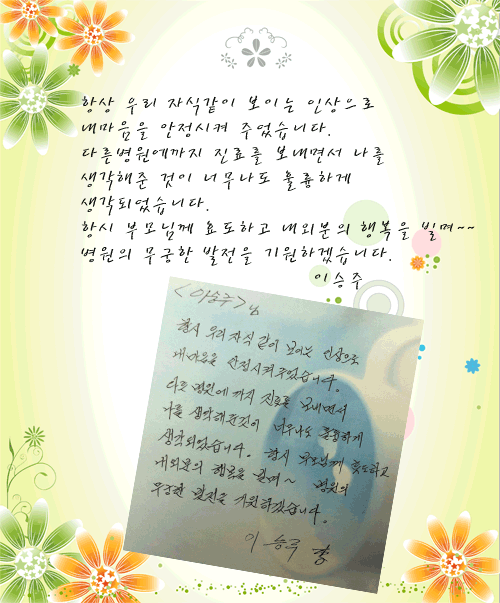 항상 우리 자식같이 보이는 인상으로
내마음을 안정시켜 주었습니다.
다른병원에까지 진료를 보내면서 나를
생각해준 것이 너무나도 훌륭하게
생각되었습니다.
항시 부모님께 효도하고 내외분의 행복을 빌며~~
병원의 무궁한 발전을 기원하겠습니다.
이승주
<이승주>님
항시 우리 자식 같이 보이는 인상으로
내마음을 안정시켜주었습니다.
다른 병원에 까지 진료를 보내면서
나를 생각해준것이 너무나도 훌륭하게
생각되었습니다. 항시 부모님께 효도하고
내외분의 행복을 빌며~ 병원의
무궁한 발전을 기원하겠습니다.
이승주